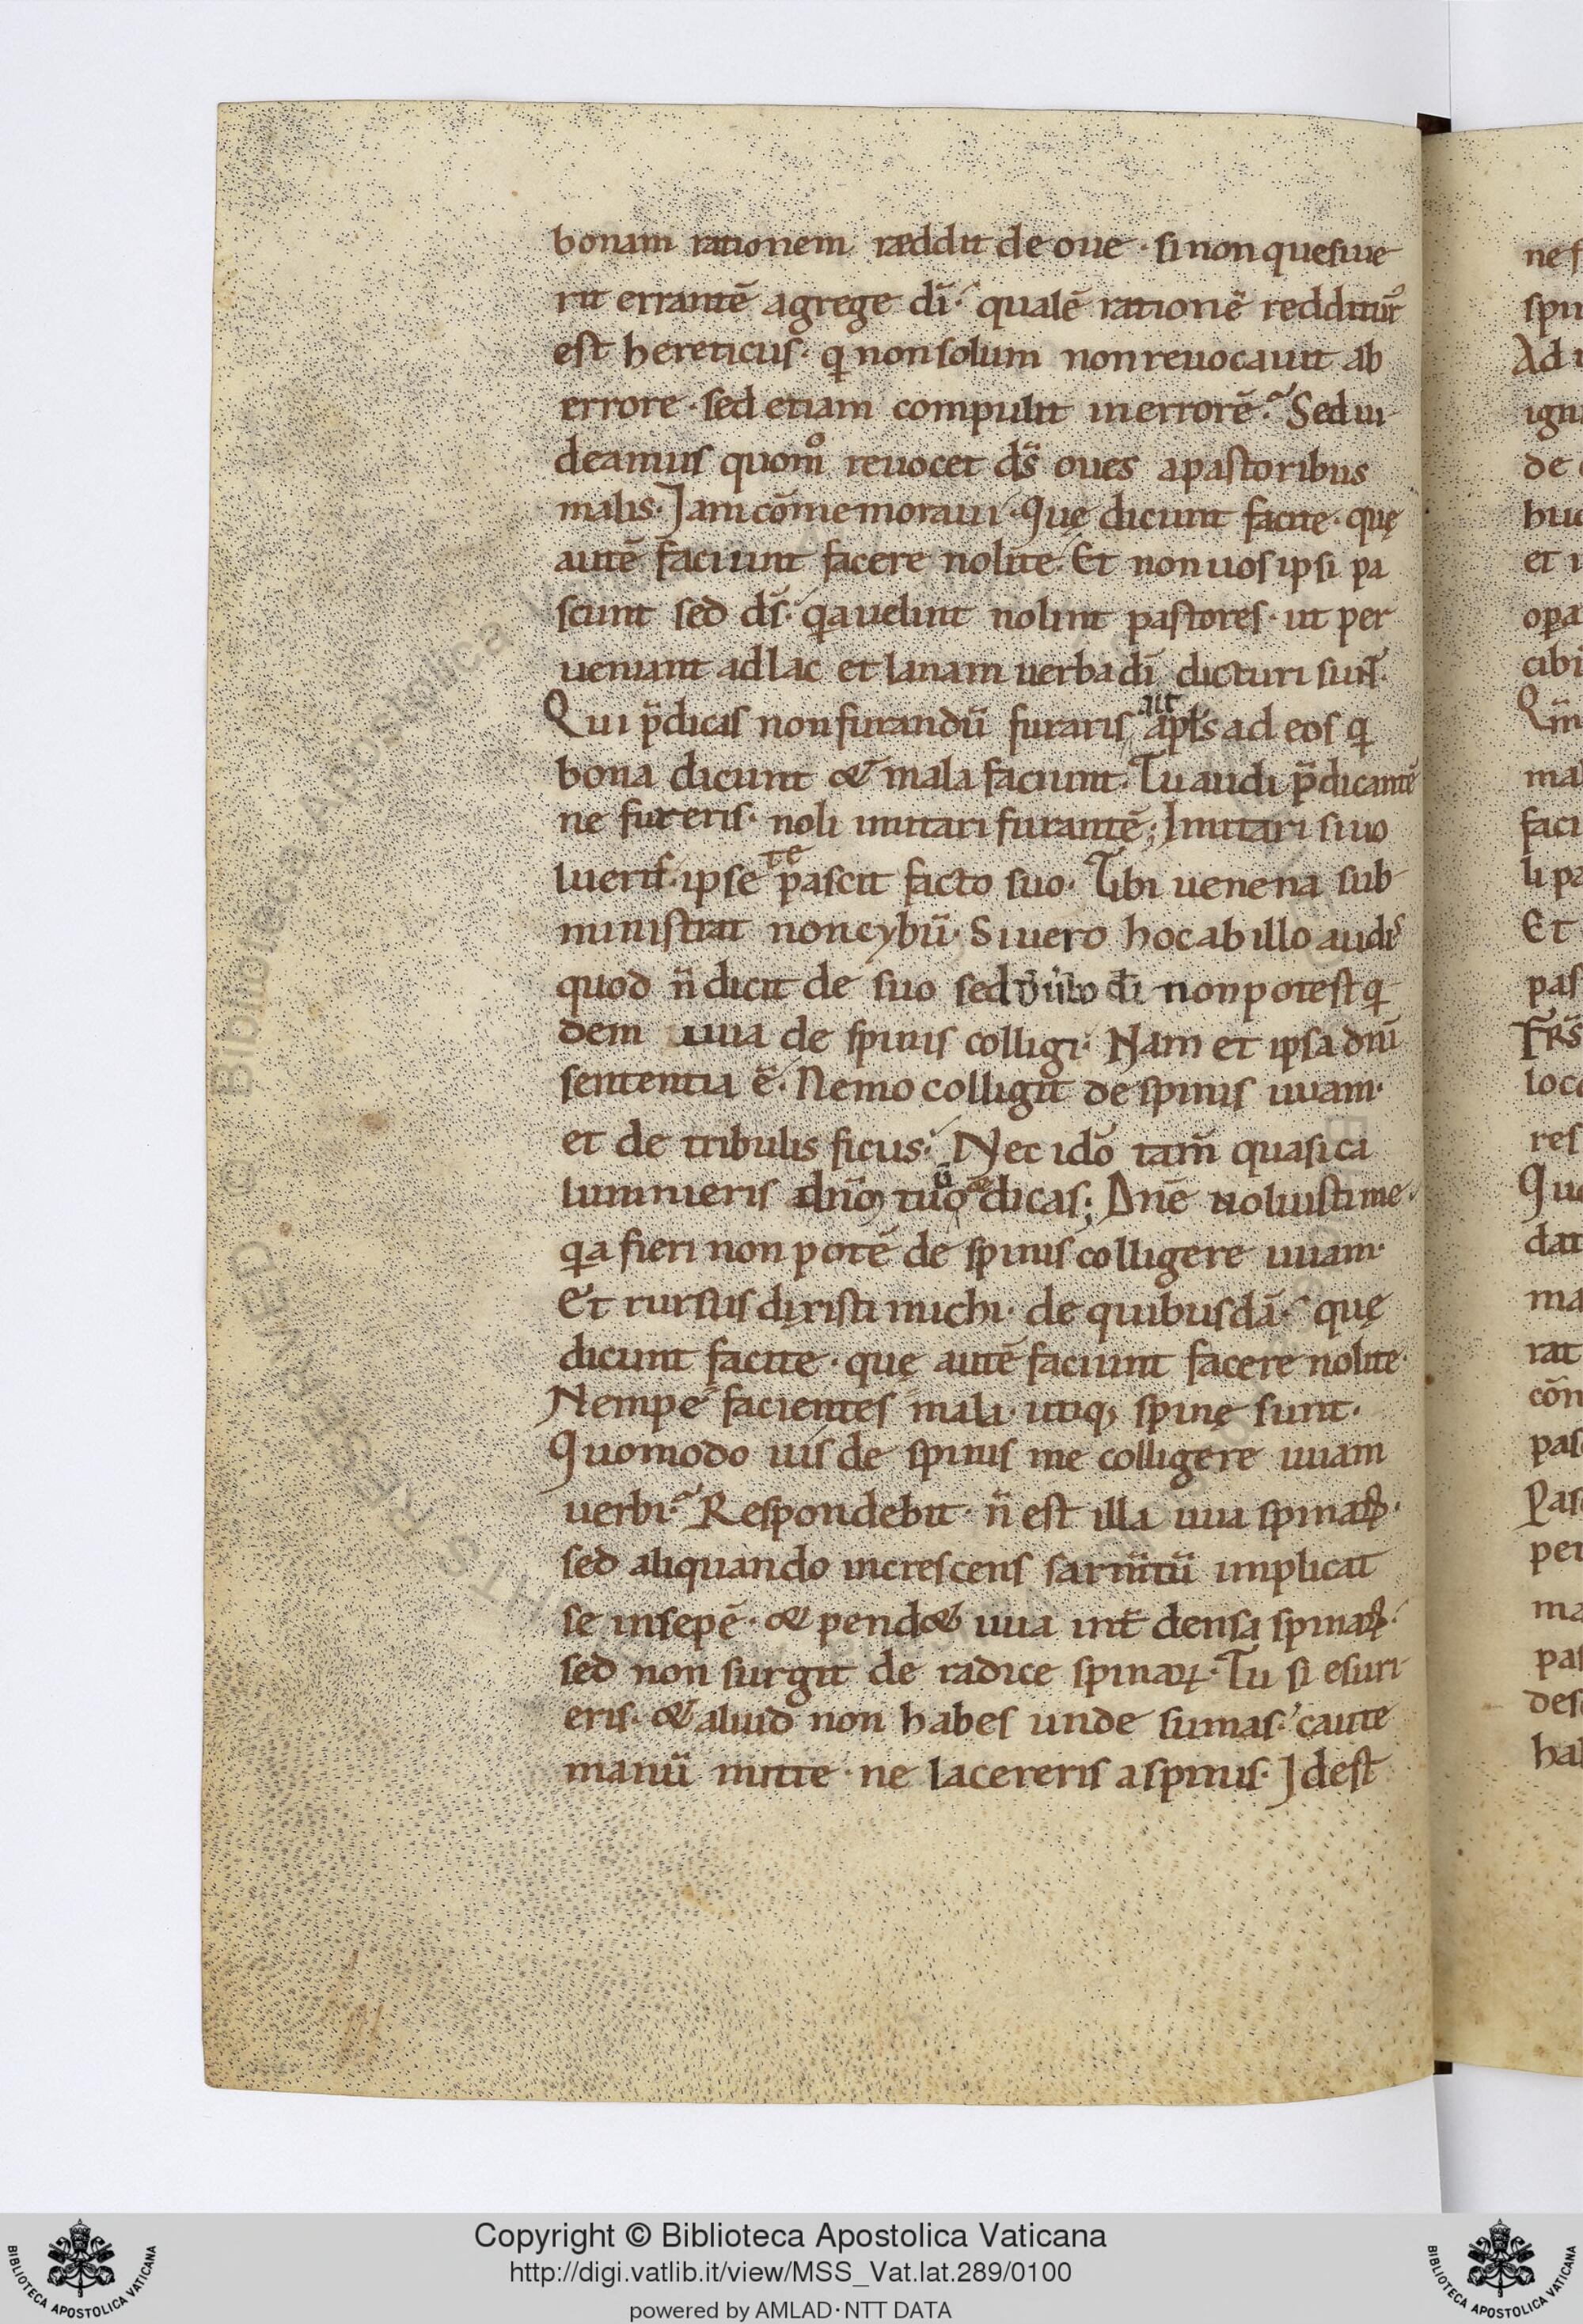 bonam rationem ræddit de oue · si non quesiue
rit errantē a grege dī· qualē rationē redditur᷒
est hereticus· q̇ non solum non reuocauit ab
errore · sed etiam compulit in errorē? Sed ui
deamus quom̊ reuocet ds̄ oues a pastoribus
malis· Jam cōmemoraui· Quę dicunt facite· quę
autē faciunt facere nolite· Et non uos ipsi pa
scunt sed ds̄· qa uelint nolint pastores· ut per
ueniant ad lac et lanam uerba dī dicturi sunt̄·
Qui p̄dicas non furandū furaris ait apl̄s ad eos q
bona dicunt & mala faciunt· Tu audi p̄dicantē
ne fureris· noli imitari furantē; Imitari si uo
lueris· ipse te pascit facto suo· Tibi uenena sub
ministrat non cybū· Si uero hoc ab illo audis
quod n̄ dicit de suo sed dī non potest q
dem uua de spinis colligi· Nam et ipsa dn̄i
sententia ē· Nemo colligit de spinis uuam·
et de tribulis ficus· Nec idō tam̄ quasi ca
lumnieris dn̄o tuo & dicas; Dn̄e noluisti me
qa fieri non potē de spinis colligere uuam·
Et rursus dixisti michi· de quibusdā· quę
dicunt facite · quę autē faciunt facere nolite·
Nempe facientes mala· utiq; spinę sunt·
Quomodo uis de spinis me colligere uuam
uerbi? Respondebit· n̄ est illa uua spinaꝝ·
sed aliquando increscens sarm̄tū implicat
se in sepē· & pend& uua int̄ densa spinaꝝ·
sed non surgit de radice spinaꝝ· Tu si esuri
eris· & aliud non habes unde sumas· caute
manū mitte · ne lacereris a spinis· Jdest
ne
Ad
de
et
Et
Copyright © Biblioteca Apostolica Vaticana
http://digi.vatlib.it/view/MSS_Vat.lat.289/0100
powered by AMLAD·NTT DATA
BIBLIOTECA APOSTOLICA VATICANA
BIBLIOTECA APOSTOLICA VATICANA